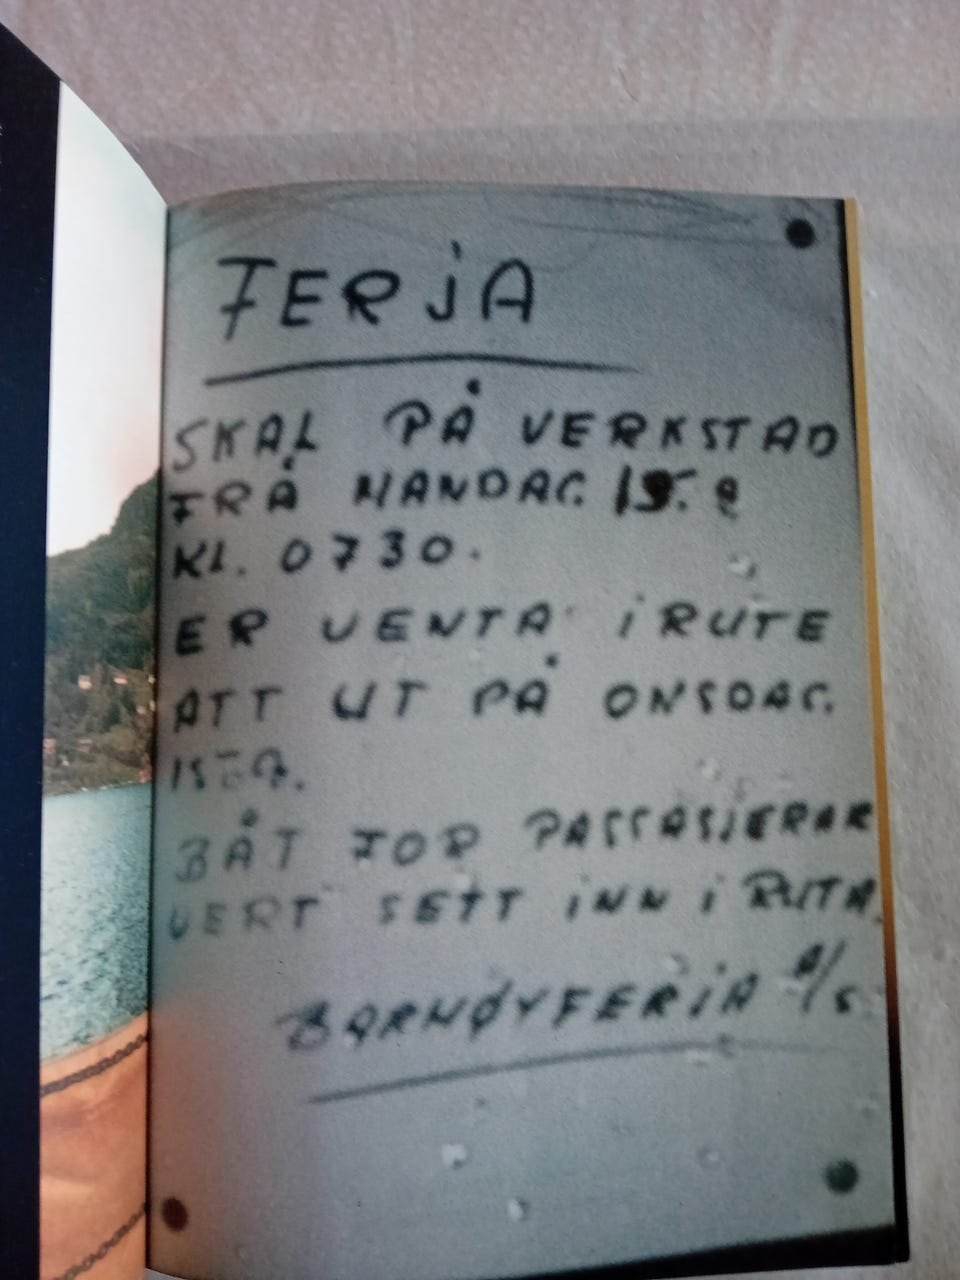 FERJA
SKAL PÅ VERKSTAD
FRÅ MANDAG.
KL. 0730.
ER VENTA I RUTE
ATT UT PÅ ONSDAG.
BÅT FOR PASSASJERAR
VERT SETT INN I RUTA.
BARMØYFERJA A/S